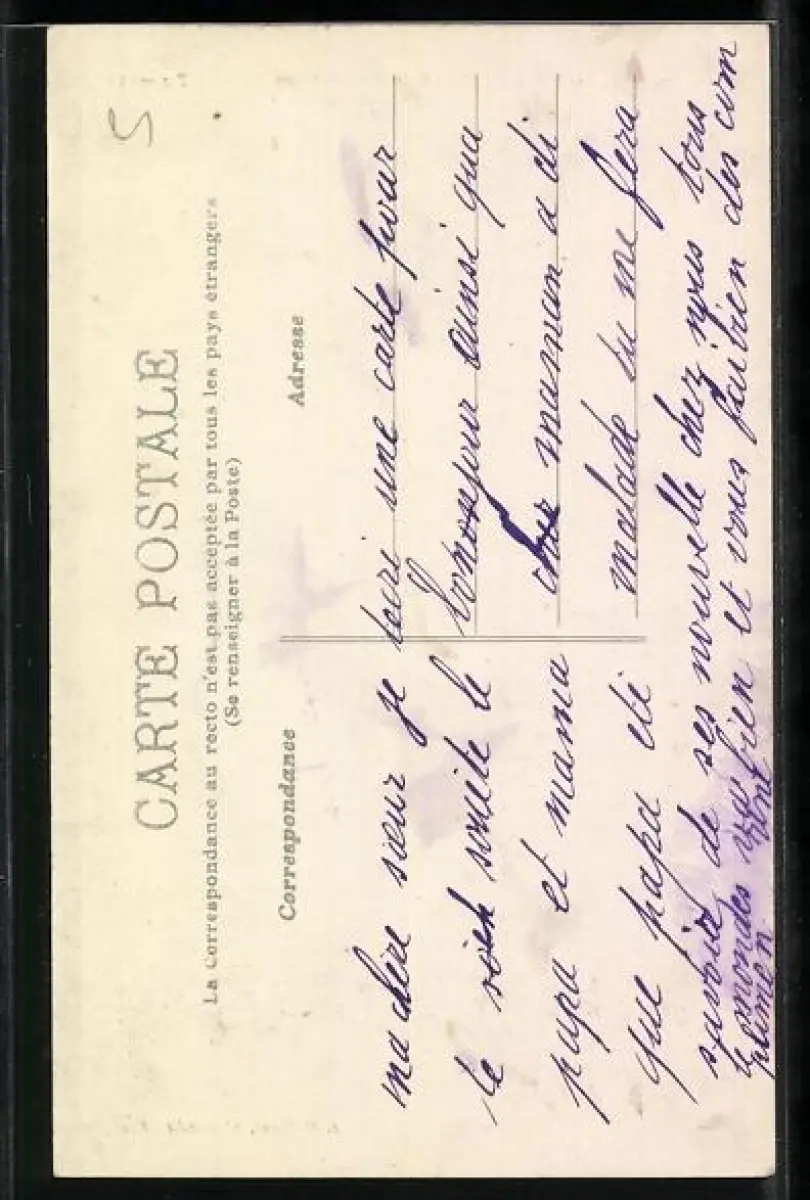 CARTE POSTALE
La Correspondance au recto n'est pas acceptée par tous les pays étrangers
(Se renseigner à la Poste)
Correspondance
Adresse
5
ma chère sœur je técri une carte pour
te souite le bonsjour ainsi qua
papa et mama maman a di
que papa eté malade tu me fera
savoir de ses nouvelle chez nous tous
le mondes va bien et vous fon bien des com
plimen